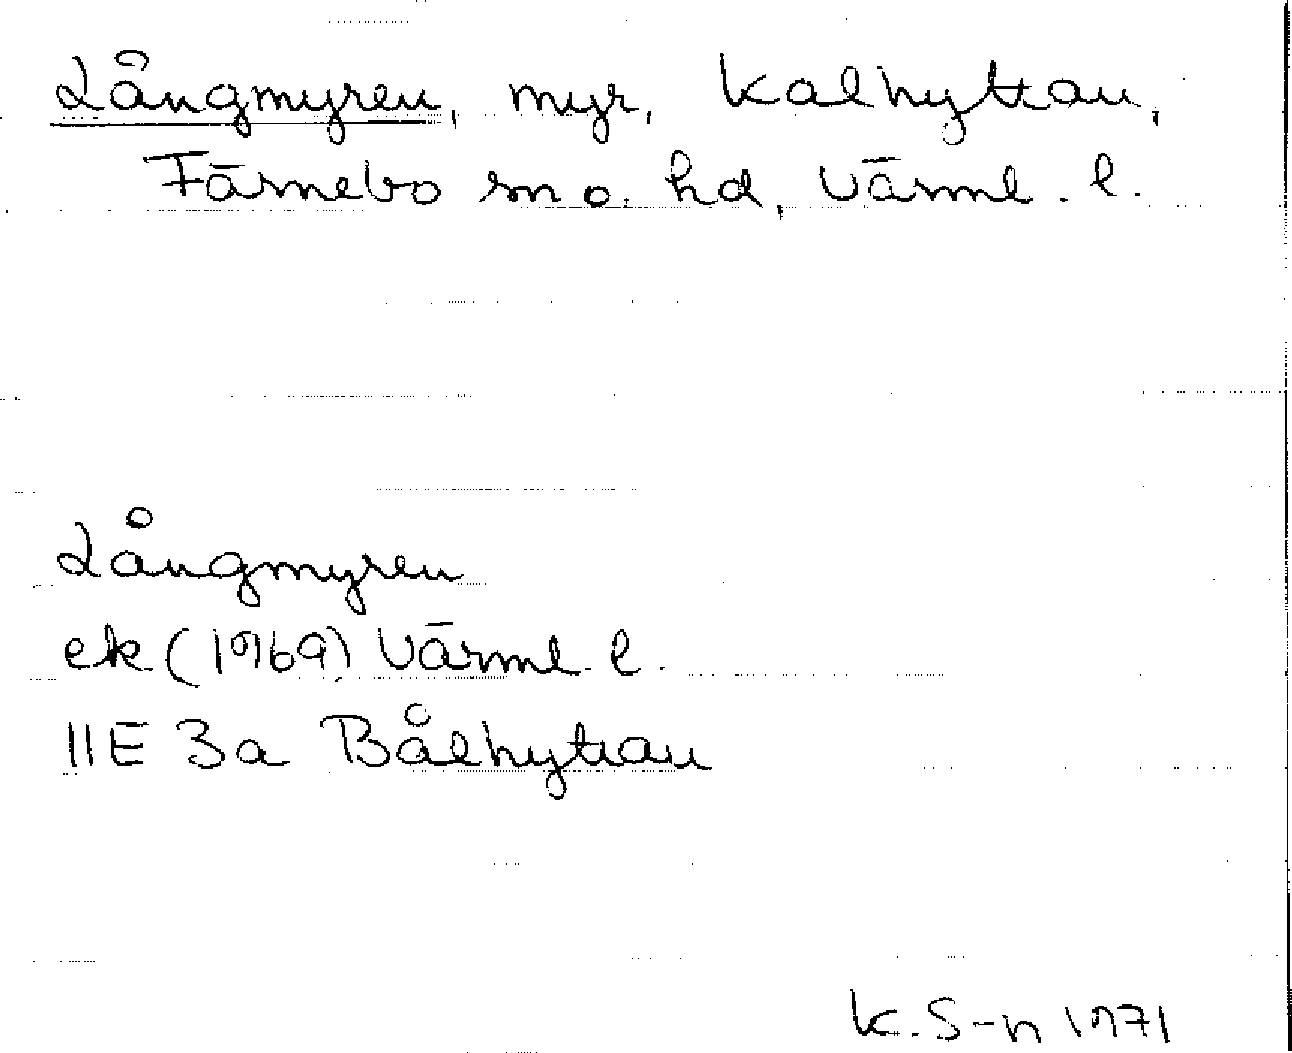 Långmyren, myr, Kalhyttan,
Färnebo sn o. hd, Värml. l.
Långmyren
ek (1969) Värml. l.
11E 3a Bålhyttan
K. S-n 1971